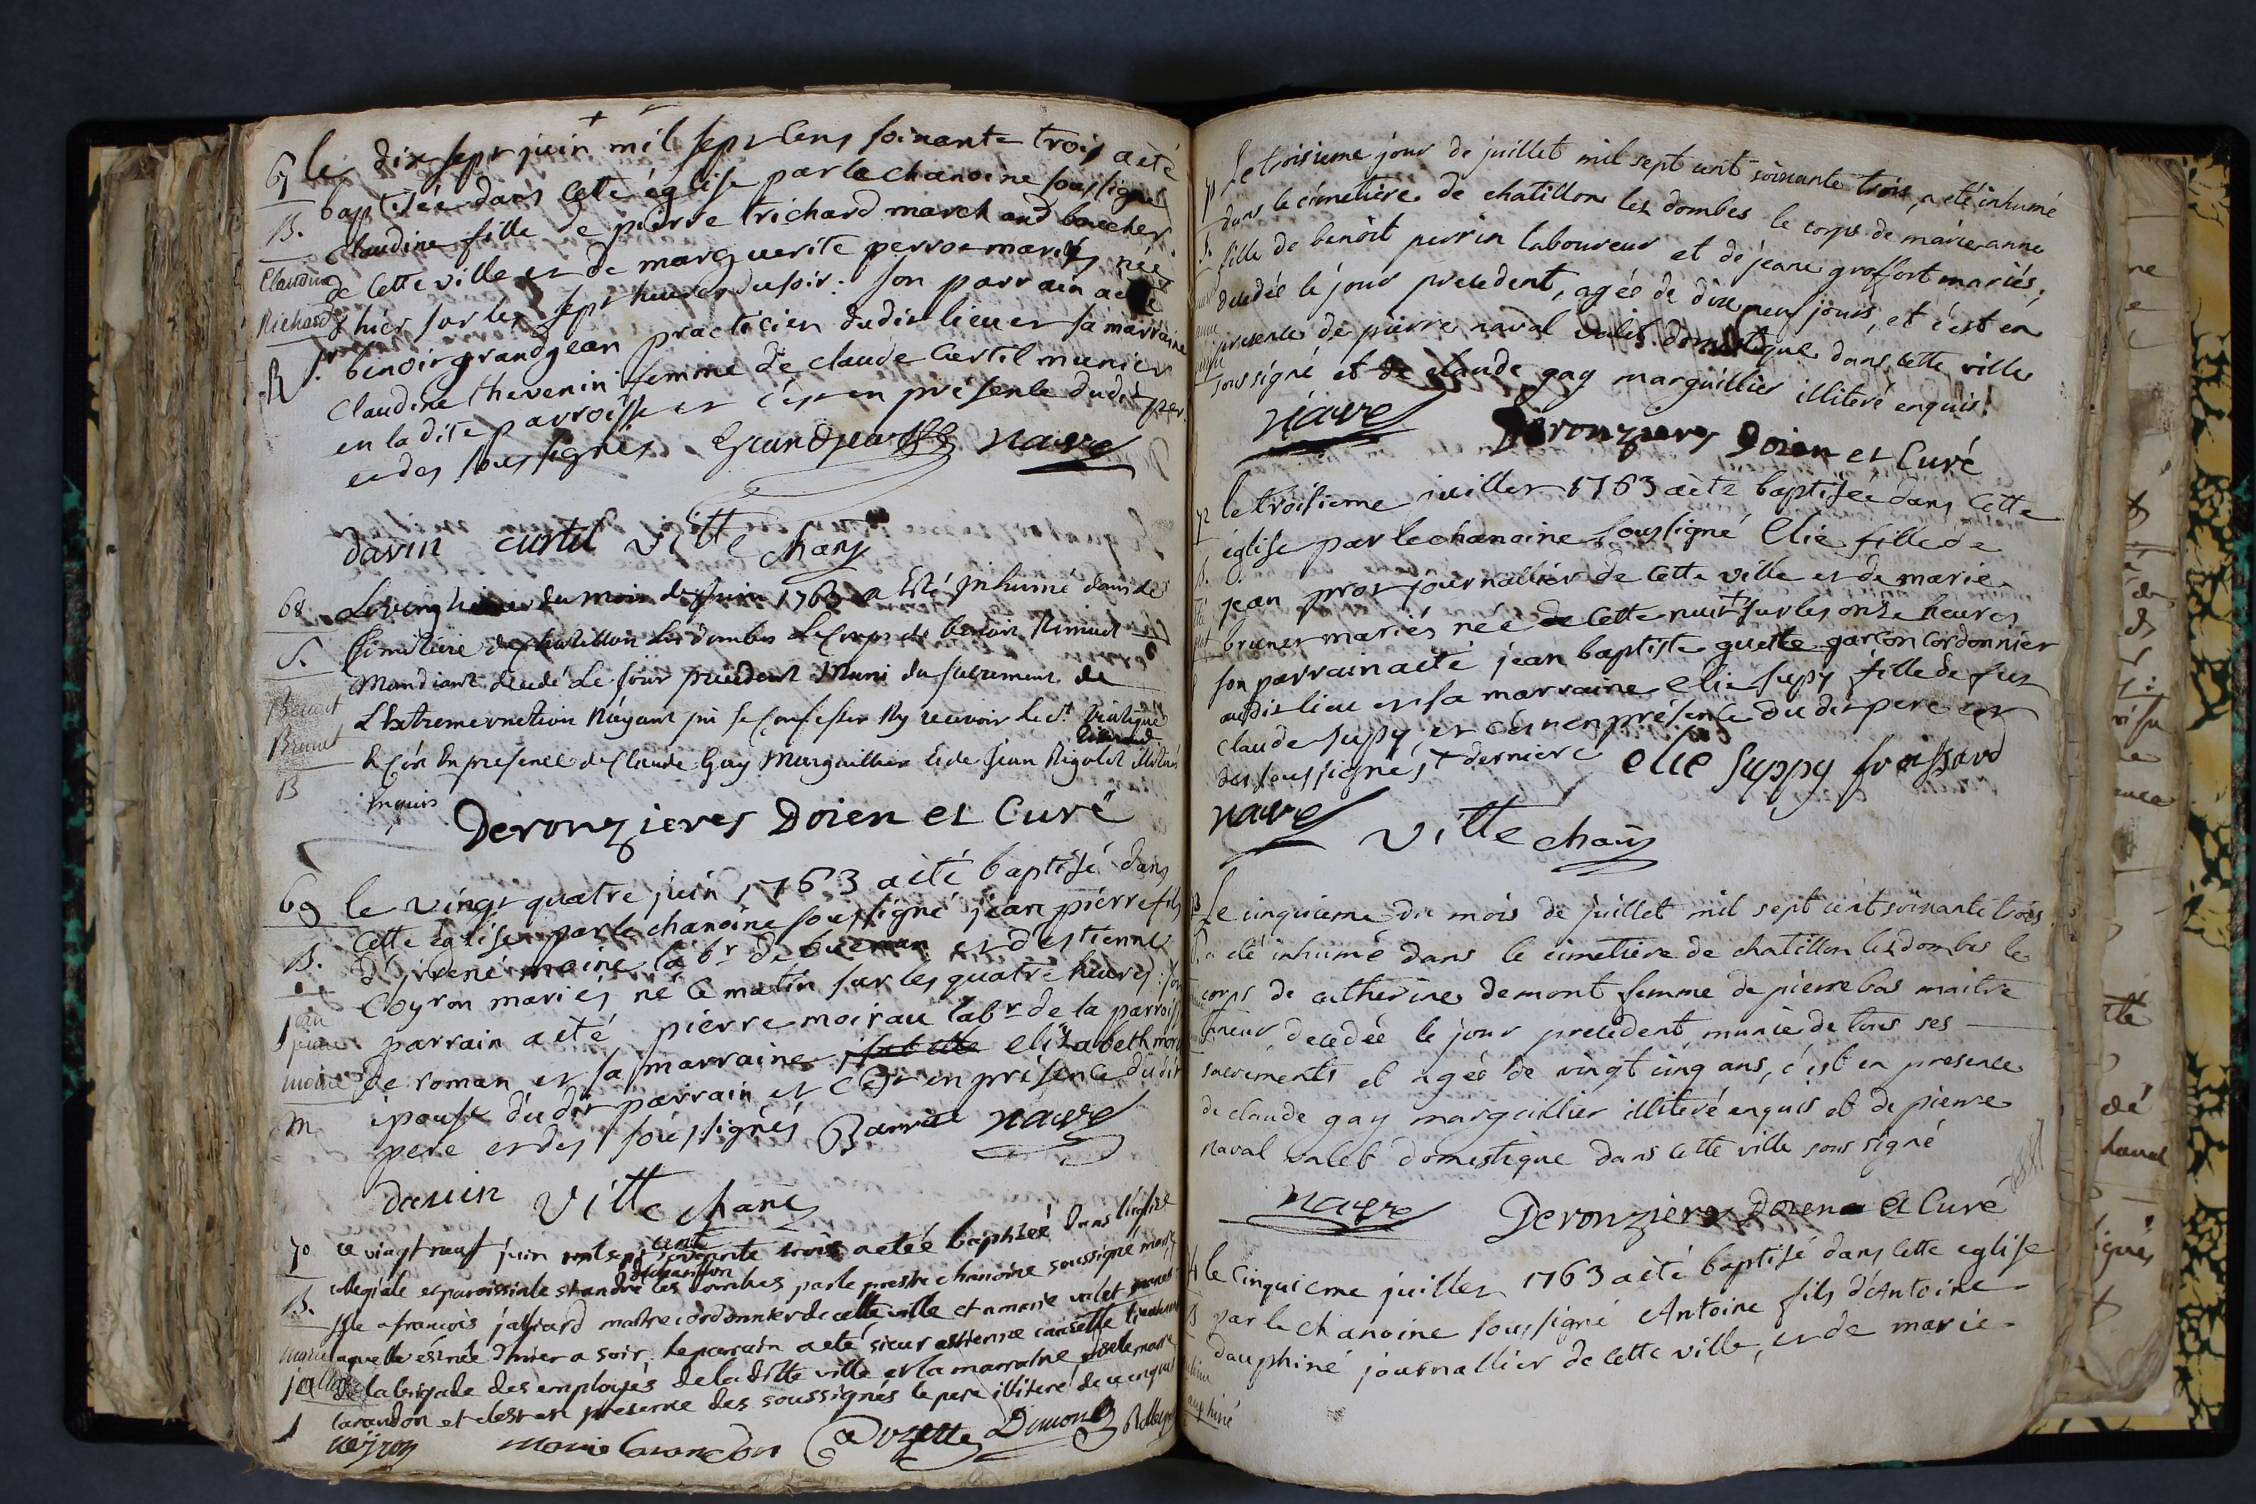 67 le dix sept juin mil sept cens soixante trois a eté
B. baptisée dans cette église par le chanoine soussigné
Claudine fille de pierre trichard marchand boucher
Claudine de cette ville et de marguerite perroe mariés née
Richard hier sur les sept heures du soir: son parrain a eté
R Sr benoit grandjean practicien dudit lieu et sa marraine
Claudine thevenin femme de claude Curtil munier
en la dite parroisse et c'est en présence dudit per
et des soussignés Grandjean nave
davin curtil vitte chan
68 Le vingt du mois de Juin 1763 a Esté inhumé dans le
S. Cimetiere de chatillon les dombes Le Corps de benoit
Mandiant decedé Le jour precedent Muni du sacrement de
Benoit L'Extremeonction N'ayant pu se Confesser Ny recevoir Le St Viatique
Et c'est En presence de Claude Gay Marguillier Et de Jean Rigolet illiterés
B Enquis
Deronzieres Doien et Curé
69 le vingt quatre juin 1763 a eté baptisé dans
cette église par le chanoine soussigné jean pierre fils
B. de rené moine labr de buenan et d'estienne
Coyron mariés né ce matin sur les quatre heures: son
jean pierre parrain a eté pierre moirau labr de la parroisse
moine de roman et sa marraine elizabeth
M épouse du dit parrain et c'est en présence dudit
pere et des soussignés nave
davin vitte chane
70 ce vingt neuf juin mil sept cent soixante trois a eteé baptiseé dans l'eglise
B. collegiale et paroissiale st andré de chatillon les dombes par le prestre chanoine soussigné marie
fille a francois jallard maitre cordonnier de cette ville et a marie valet
marie laquelle est née d'hier a soir. Le parain a eté sieur estienne
de la brigade des employés de la ditte ville et la marraine
carandon et c'est en presence des soussignés le pere illiteré de ce enquis
marie carandon
71 Le troisieme jour de juillet mil sept cent soixante trois, a été inhumé
dans le cémetiere de chatillon lez dombes le corps de marie anne
S. fille de benoit perrin laboureur et de jeane groffort mariés,
decedée le jour precedent, agée de dix neuf jours, et c'est en
presence de pierre naval valet domestique dans cette ville
soussigné et de claude gay marguillier illiteré enquis
nave Deronzieres Doien et Curé
72 le troisieme juillet 1763 a eté baptisée dans cette
église par le chanoine soussigné Elie fille de
jean prot journallier de cette ville et de marie
brunet mariés née de cette nuit sur les onze heures
son parrain a eté jean baptiste guette garcon cordonnier
audit lieu et sa marraine elie supy fille de feu
claude supy, et c'est en présence du dit pere et
des soussignés + derniere elie suppy froissard
nave vitte chan
73 Le cinquieme du mois de juillet mil sept cent soixante trois
a été inhumé dans le cimetiere de chatillon lez dombes le
corps de catherine demont femme de pierre bas maitre
decedée le jour precedent munie de tous ses
sacrements et agée de vingt cinq ans, c'est en presence
de claude gay marguillier illiteré enquis et de pierre
naval valet domestique dans cette ville soussigné
nave Deronzieres Doien et Curé
74 le cinquieme juillet 1763 a eté baptisé dans cette eglise
par le chanoine soussigné Antoine fils d'Antoine
dauphiné journallier de cette ville, et de marie